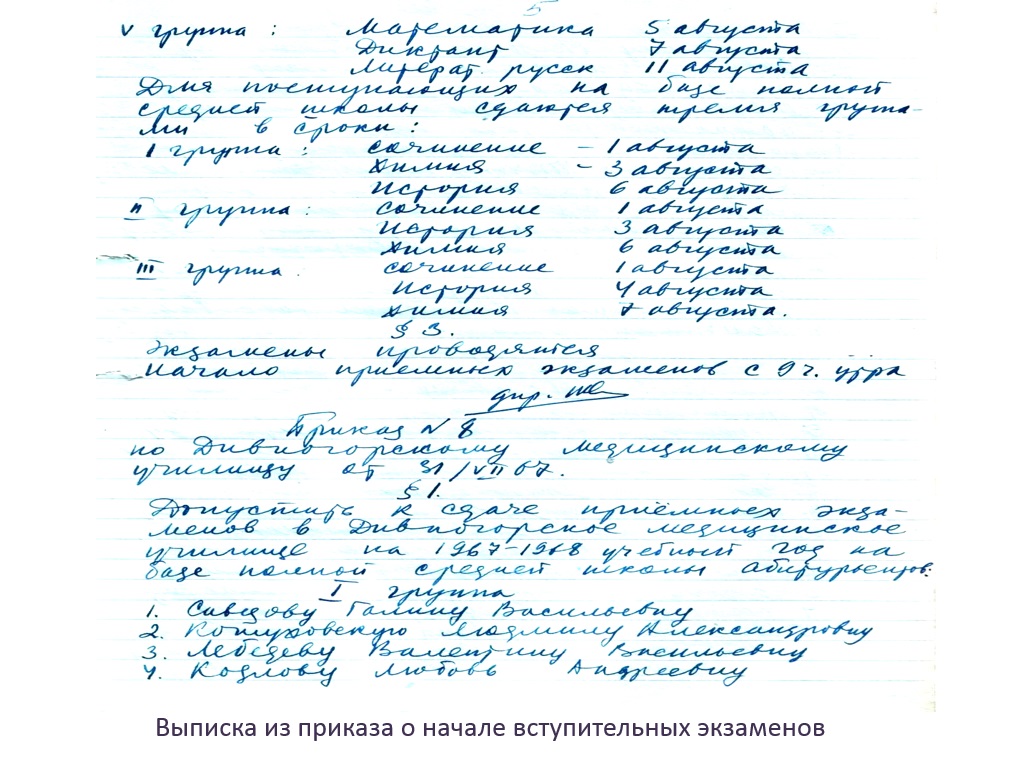 5
V группа: Математика 5 августа
Диктант 7 августа
Литерат. русск 11 августа
Для поступающих на базе полной
средней школы сдаются тремя группа-
ми в сроки:
I группа: сочинение - 1 августа
химия - 3 августа
История 6 августа
II группа: сочинение 1 августа
История 3 августа
химия 6 августа
III группа. сочинение 1 августа
История 4 августа
химия 7 августа.
§ 3.
Экзамены проводятся
Начало приемных экзаменов с 9 ч. утра
дир.
Приказ N 8
по Дивногорскому медицинскому
училищу от 31/VII 67.
§ 1.
Допустить к сдаче приёмных экза-
менов в Дивногорское медицинское
училище на 1967-1968 учебный год на
базе полной средней школы абитурьентов:
I группа
1. Галину Васильевну
2. Людмилу Александровну
3. Лебедеву Валентину Васильевну
4. Козлову Любовь Андреевну
Выписка из приказа о начале вступительных экзаменов